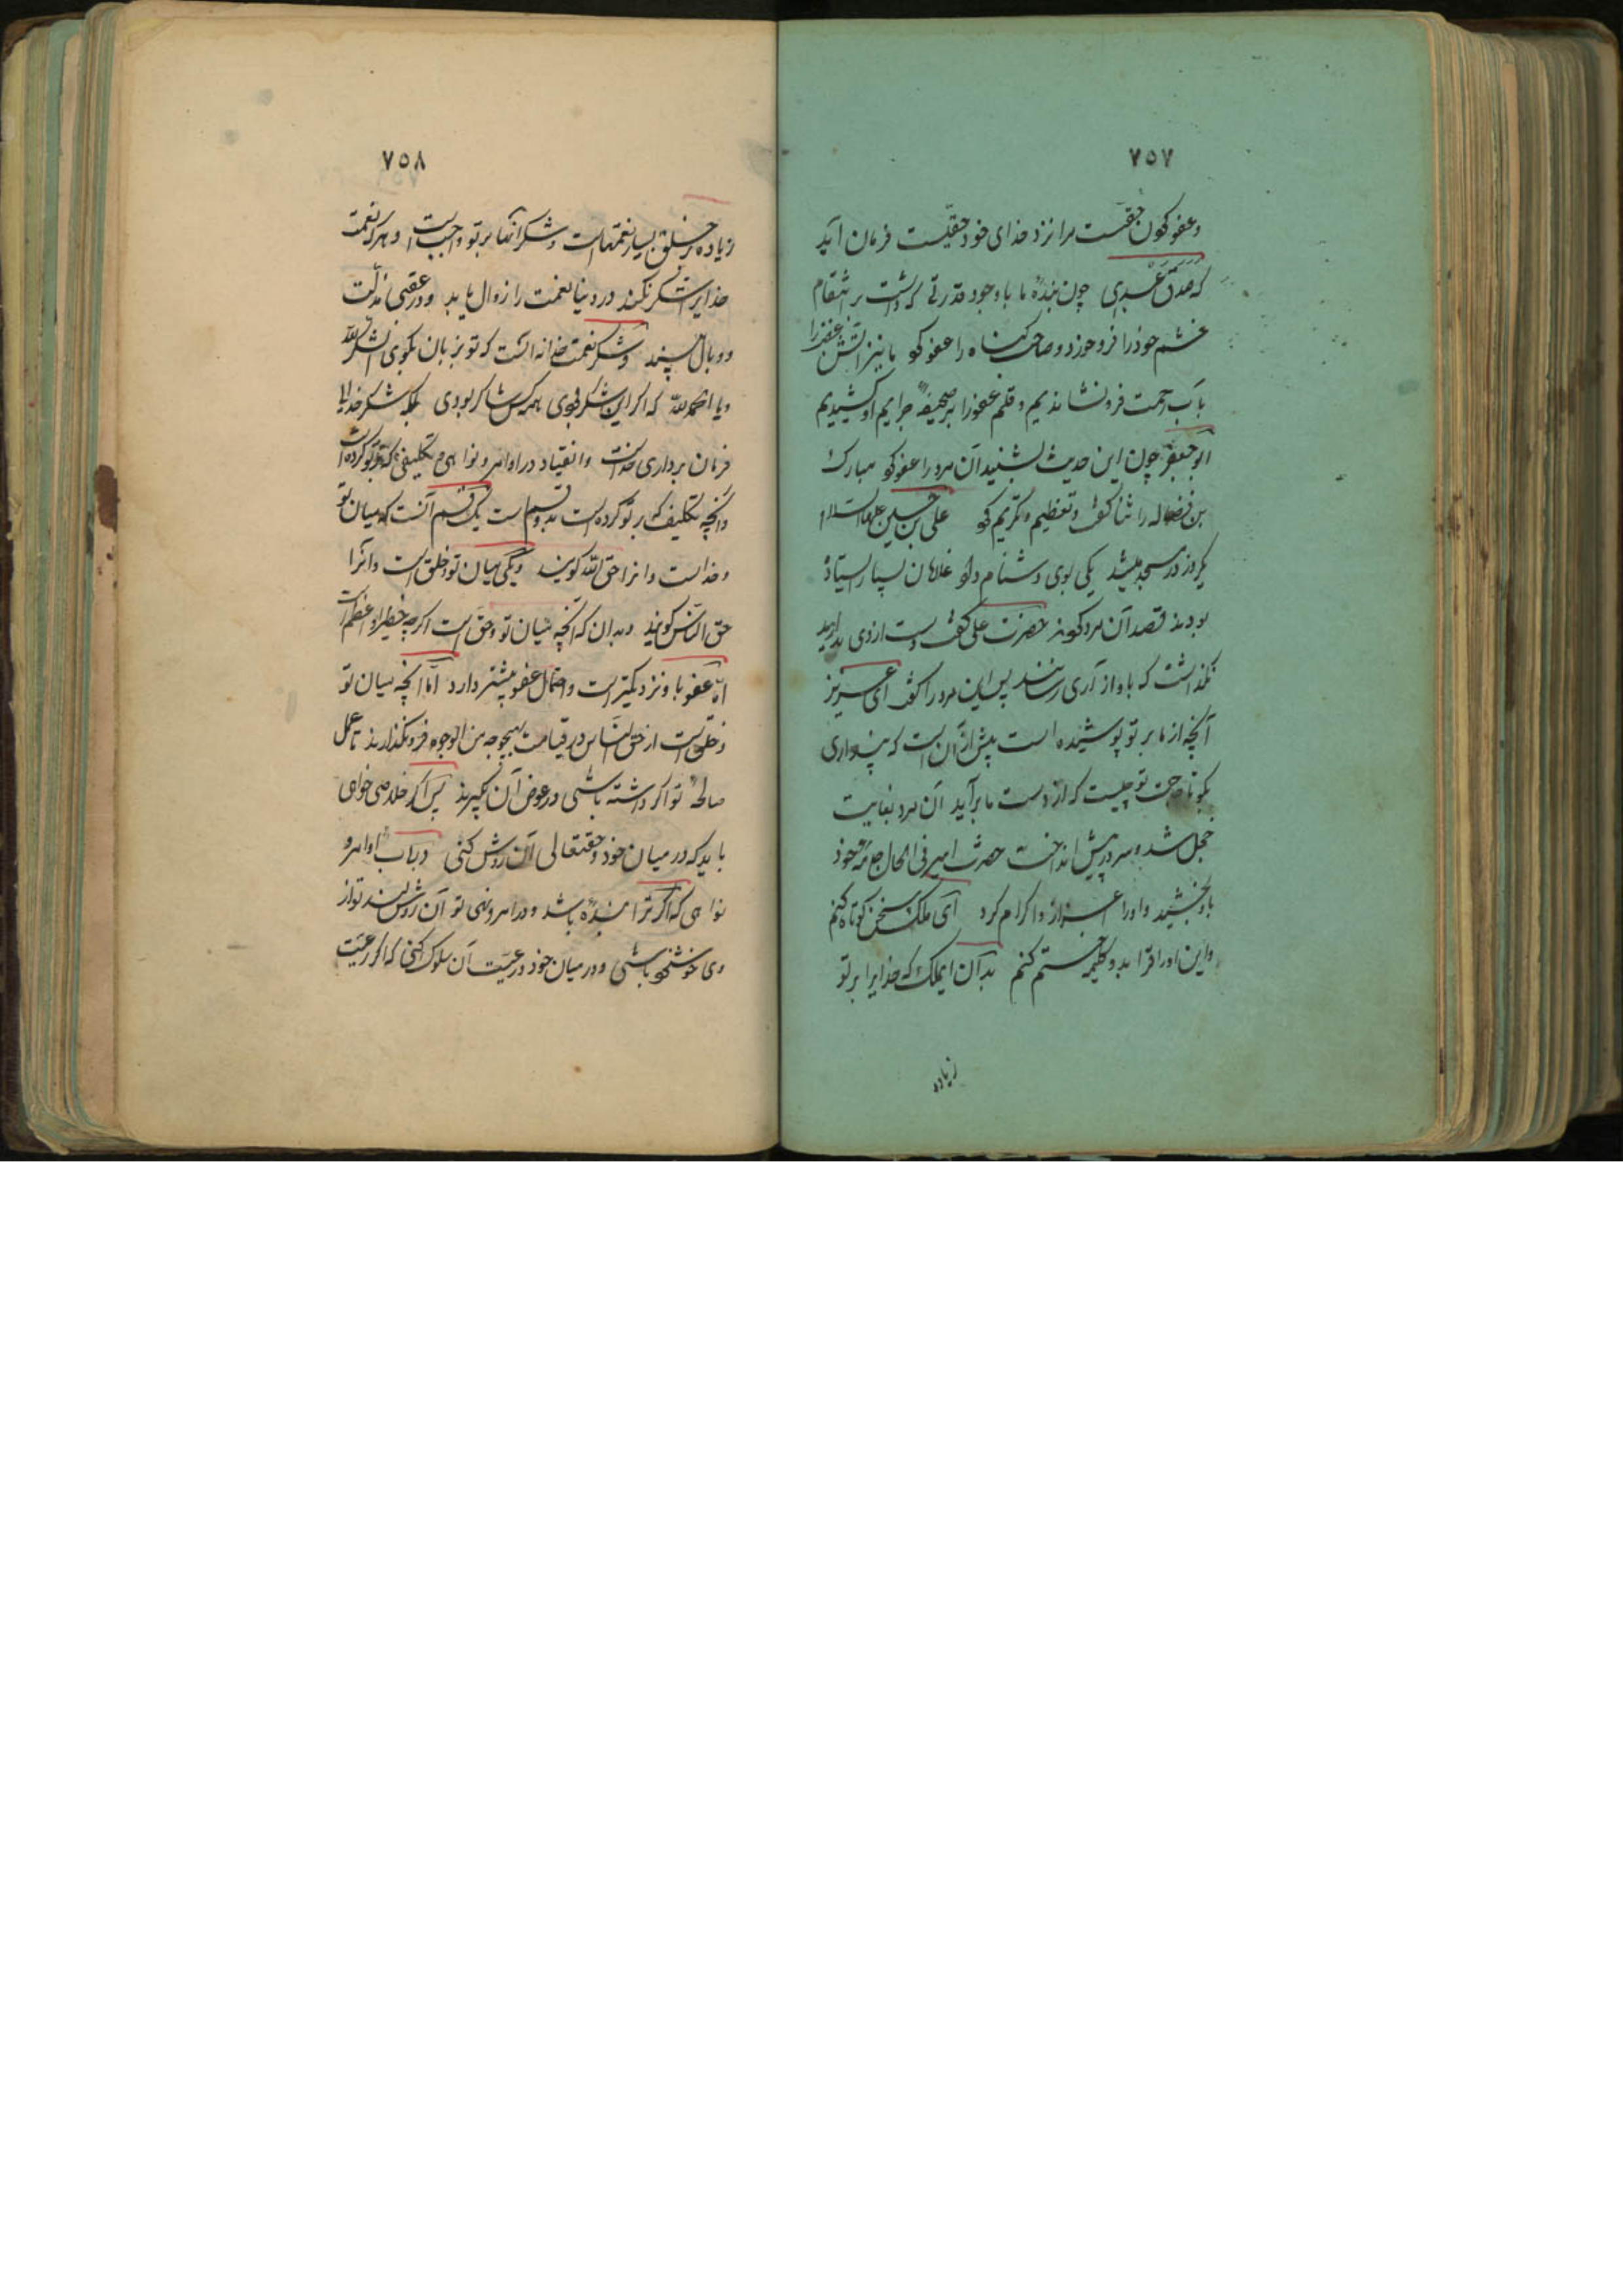 ٧٥٧
و عفو کردن حقیست مرا نزد خدای خود حقیست فرمان آید
که صدق عبدی چون بندهٔ ما باوجود قدرتی که داشت بر انتقام
خشم خود را فرو خورد و صاحب گناه را عفو کرد ما نیز آتش غضب را
بآب رحمت فرونشاندیم و قلم عفو را بر صحیفهٔ جرایم او کشیدیم
ابو جعفر چون این حدیث بشنید آن مرد را عفو کرد مبارک
بن فضاله را ثنا گفت و تعظیم و تکریم کرد علی بن حسین علیهما السلام
یکروز در مسجد میشد یکی بوی دشنام داد غلامان بسیار ایستاده
بودند قصد آن مرد کردند حضرت علی گفت دست از وی بدارید
نگذاشت که باو آزاری رسانند پس این مرد را گفت ای عزیز
آنچه از ما بر تو پوشیده است بیش از آن است که پنداری
بگو تا حاجت تو چیست که از دست ما برآید آن مرد بغایت
خجل شد و سر در پیش انداخت حضرت امیر فی الحال جامه خود
باو بخشید و او را اعزاز و اکرام کرد ای ملک سخن کوتاه کنم
و این اوراق را بدو کلمه ختم کنم بدان ایملک که خدایرا بر تو
زیاده
٧٥٨
زیاده بر خلق بسیار نعمتهاست و شکر آنها بر تو واجبست و هر که نعمت
خدایرا شکر نکند در دنیا نعمت را زوال یابد و در عقبی مذلت
و وبال بیند و شکر نعمت خدا نه آنست که تو بزبان بگوی الشکر لله
و یا الحمد لله که اگر این شکر بودی همه کس شاکر بودی بلکه شکر خدایا
فرمان برداری خداست و انقیاد در اوامر و نواهی و تکلیفی که بر تو کرده است
و آنچه تکلیف که بر تو کرده است بدو قسم است یک قسم آنست که میان تو
و خداست و آنرا حق الله گویند و یکی میان تو و خلق است و آنرا
حق الناس گویند و بدان که آنچه میان تو و حق است اگرچه خطیر و اعظم است
اما عفو باو نزدیکتر است و احتمال عفو بیشتر دارد اما آنچه میان تو
و خلق است از حق الناس در قیامت بهیچوجه من الوجوه فرونگذارند تا عمل
صالحهٔ تو اگر داشته باشی در عوض آن بگیرند پس اگر خلاصی خواهی
باید که در میان خود و حقتعالی آن روش کنی در باب اوامر و
نواهی که اگر ترا بندهٔ باشد و در امر و نهی تو آن روش کند تو از
وی خوشنود باشی و در میان خود و رعیت آن سلوک کنی که اگر رعیت